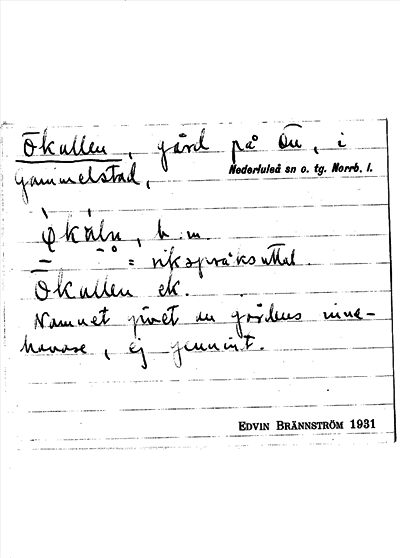 Ökullen, gård på Ön, i
Nederluleå sn o. tg. Norrb. l.
Gammelstad,
b. m.
= riksspråksuttal.
Ökullen ek.
Namnet givet av gårdens inne-
havare, ej genuint.
EDVIN BRÄNNSTRÖM 1931